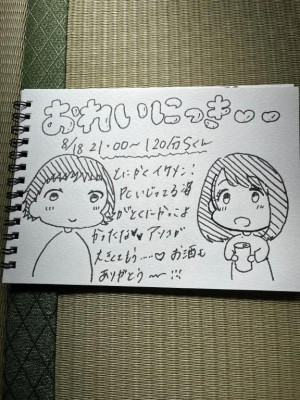 おれいにっき
8/18 21:00〜120分Sくん
とにかくイケメン!
PCいじってる姿
がとくにかっこよ
かったな♥アソコが
大きくてもう……♡お酒も
ありがとう〜!!!